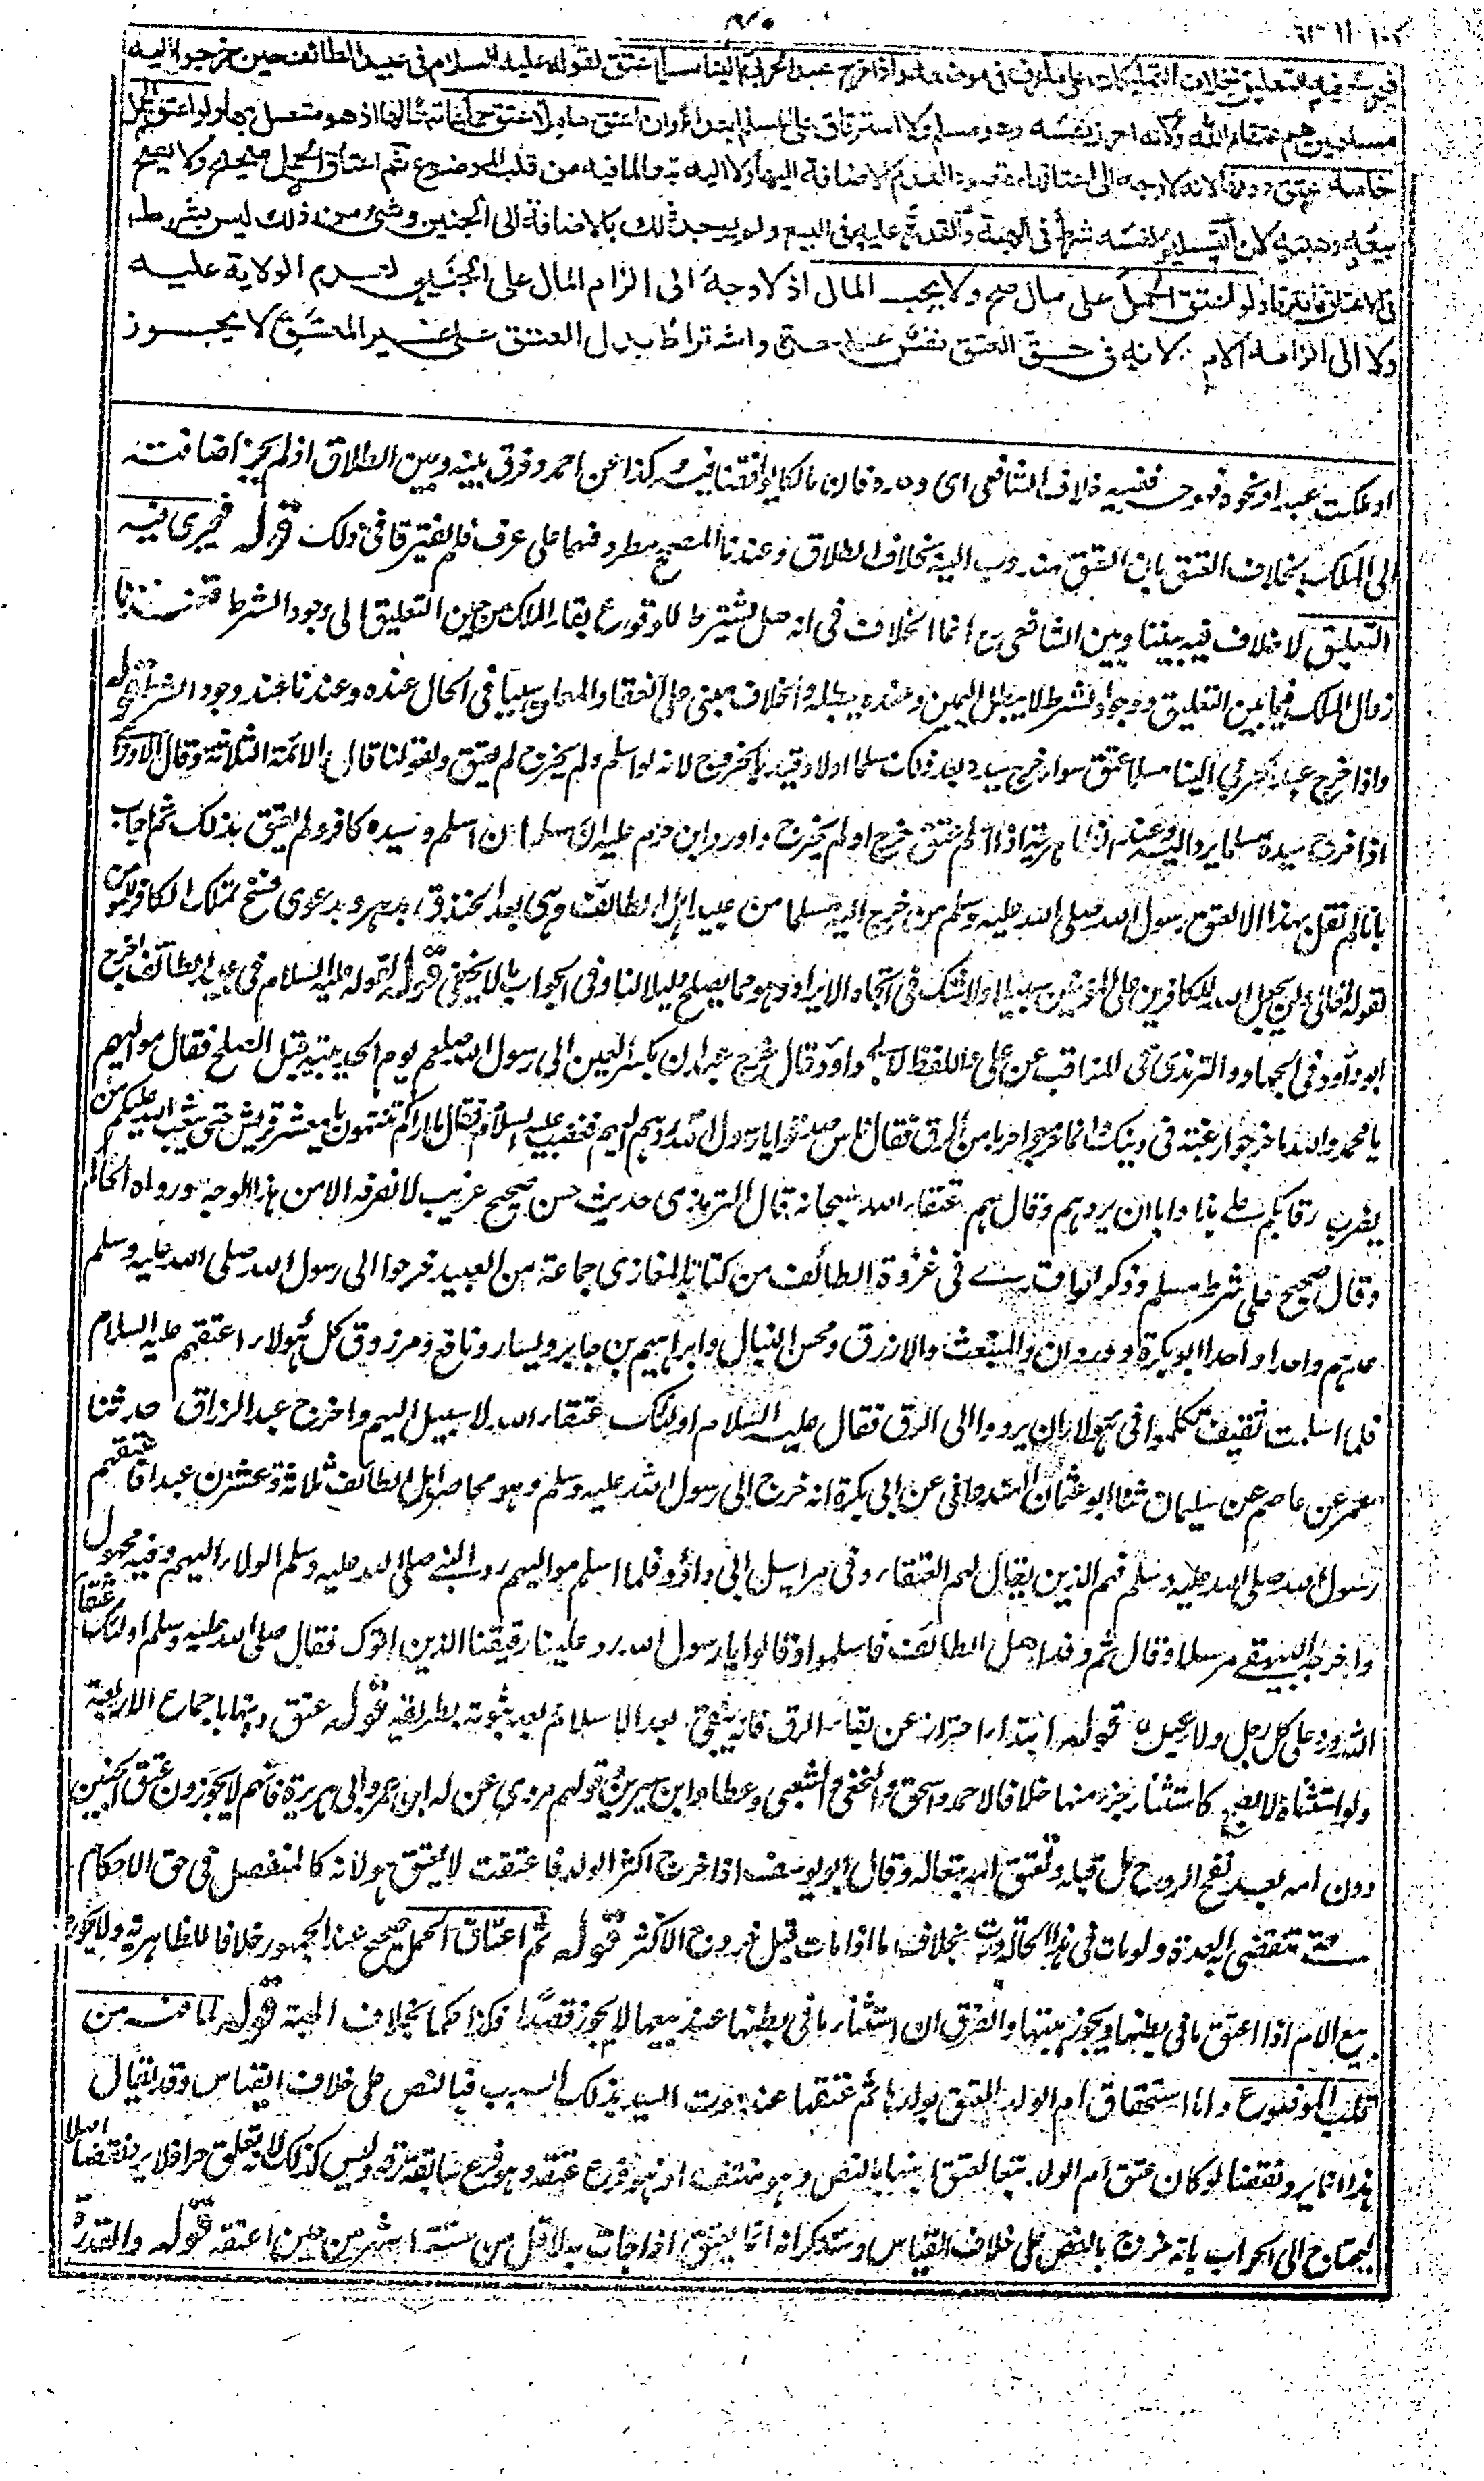 فيجري فيه التعليق بخلاف التمليكات على ما عرف في موضعه واذا خرج عبد الحربي الينا مسلما عتق لقوله عليه السلام في عبيد الطائف حين خرجوا اليه
مسلمين هم عتقاء الله ولانه احرز نفسه وهو مسلم ولا استرقاق على المسلم ابتداء وان اعتق حاملا عتق حملها تبعا لها اذ هو متصل بها ولو اعتق الحمل
خاصة عتق دونها لانه لا وجه الى اعتاقها مقصودا لعدم الاضافة اليها ولا اليه تبعا لما فيه من قلب الموضوع ثم اعتاق الحمل صحيح ولا يصح
بيعه وهبته لان التسليم نفسه شرط في الهبة والقدرة عليه في البيع ولم يوجد ذلك بالاضافة الى الجنين وشيء من ذلك ليس بشرط
في الاعتاق فافترقا ولو اعتق الحمل على مال صح ولا يجب المال اذ لا وجه الى الزام المال على الجنين لعدم الولاية عليه
ولا الى الزامه الام لانه في حق العتق نفس على حدة واشتراط بدل العتق على غير المعتق لا يجوز
او ملكت عبدا ونحوه فهو حر ففيه خلاف الشافعي اي فان مالكا يوافقنا فيه وكذا عن احمد وفرق بينه وبين الطلاق اذ لم يجز اضافته
الى الملك بخلاف العتق بان العتق مندوب اليه بخلاف الطلاق وعندنا المصحح مطرد فيهما على عرف فلم يفترقا في ذلك قوله فيجري فيه
التعليق لا خلاف فيه بيننا وبين الشافعي رح انما الخلاف في انه هل يشترط للوقوع بقاء الملك من حين التعليق الى وجود الشرط فعندنا
زوال الملك فيما بين التعليق ووجود الشرط لا يبطل اليمين وعنده يبطله والخلاف مبني على انعقاد المعلق سببا في الحال عنده وعندنا عند وجود الشرط قوله
واذا خرج عبد الحربي الينا مسلما عتق سواء خرج سيده بعد ذلك مسلما اولا وقيد بالخروج لانه لو اسلم ولم يخرج لم يعتق وبقولنا قال الائمة الثلاثة وقال الاوزاعي
اذا خرج سيده مسلما يرد اليه وعند الظاهرية اذا اسلم عتق خرج او لم يخرج واورد ابن حزم عليه ان سلمان اسلم وسيده كافر ولم يعتق بذلك ثم اجاب
بانا لم نقل بهذا الا لعتق رسول الله صلى الله عليه وسلم من خرج اليه مسلما من عبيد اهل الطائف وهي بعد الخندق بدهر وبدعوى نسخ تملك الكافر للمؤمن
لقوله تعالى ولن يجعل الله للكافرين على المؤمنين سبيلا ولا شك في اتجاه الايراد وهو مما يصلح دليلا لنا وفي الجواب ما لا يخفى قوله لقوله عليه السلام في عبيد الطائف اخرج
ابو داود في الجهاد والترمذي في المناقب عن علي واللفظ لابي داود قال خرج عبدان بكسر العين الى رسول الله صلعم يوم الحديبية قبل الصلح فقال مواليهم
يا محمد والله ما خرجوا رغبة في دينك وانما خرجوا هربا من الرق فقال ناس صدقوا يا رسول الله ردهم اليهم فغضب عليه السلام فقال ما اراكم تنتهون يا معشر قريش حتى يبعث الله عليكم من
يضرب رقابكم على هذا وابى ان يردهم وقال هم عتقاء الله سبحانه قال الترمذي حديث حسن صحيح غريب لا نعرفه الا من هذا الوجه ورواه الحاكم
وقال صحيح على شرط مسلم وذكر الواقدي في غزوة الطائف من كتاب المغازي جماعة من العبيد خرجوا الى رسول الله صلى الله عليه وسلم
عدهم واحدا واحدا ابو بكرة ووردان والمنبعث والازرق ومحس النبال وابراهيم بن جابر ويسار ونافع ومرزوق كل هؤلاء اعتقهم عليه السلام
فلما اسلمت ثقيف تكلموا في هؤلاء ان يردوا الى الرق فقال عليه السلام اولئك عتقاء الله لا سبيل اليهم واخرج عبد الرزاق حدثنا
معمر عن عاصم عن سليمان ثنا ابو عثمان النهدي عن ابي بكرة انه خرج الى رسول الله عليه وسلم وهو محاصر اهل الطائف ثلاثة وعشرين عبدا فاعتقهم
رسول الله صلى الله عليه وسلم فهم الذين يقال لهم العتقاء وفي مراسيل ابي داود فلما اسلم مواليهم رد النبي صلى الله عليه وسلم الولاء اليهم وفيه مجهول
واخرجه البيهقي مرسلا وقال ثم وفد اهل الطائف فاسلموا وقالوا يا رسول الله رد علينا رقيقنا الذين اتوك فقال صلى الله عليه وسلم اولئك عتقاء
الله ورد على كل رجل ولاء عبده قوله ابتداء احتراز عن بقاء الرق فانه يبقى بعد الاسلام بعد ثبوته بطريقه قوله عتق دونها باجماع الاربعة
ولو استثناه لا يصح كاستثناء جزء منها خلافا لاحمد واسحق والنخعي والشعبي وعطاء وابن سيرين وقولهم مروي عن ابن عمر وابي هريرة فانهم لا يجوزون عتق الجنين
دون امه بعد نفخ الروح بل قبله وتعتق امه بتعاله وقال ابو يوسف اذا خرج اكثر الولد فاعتقت لا يعتق هو لانه كالمنفصل في حق الاحكام
حتى تنقضي به العدة ولو مات في هذه الحالة ورث بخلاف ما اذا مات قبل خروج الاكثر قوله ثم اعتاق الحمل صحيح عند الجمهور خلافا للظاهرية ولا يجوز
بيع الام اذا اعتق ما في بطنها ويجوز هبتها والفرق ان استثناء ما في بطنها عند بيعها لا يجوز قصدا فكذا حكما بخلاف الهبة قوله لما فيه من
قلب الموضوع واما استحقاق ام الولد العتق بولدها ثم عتقها عند موت السيد بذلك السبب فبالنص على خلاف القياس وقد يقال
هذا انما يرد نقضا لو كان عتق ام الولد تبعا لعتق ابنها بالنص وهو منتف اذ هو فرع عتقه وهو فرع سابقة رقه وليس كذلك لانه تعلق حرا فلا يرد نقضا اصلا
ليحتاج الى الجواب بانه خرج بالنص على خلاف القياس وستذكر انه انما يعتق اذا جاءت به لاقل من ستة اشهر من حين اعتقه قوله والقدرة